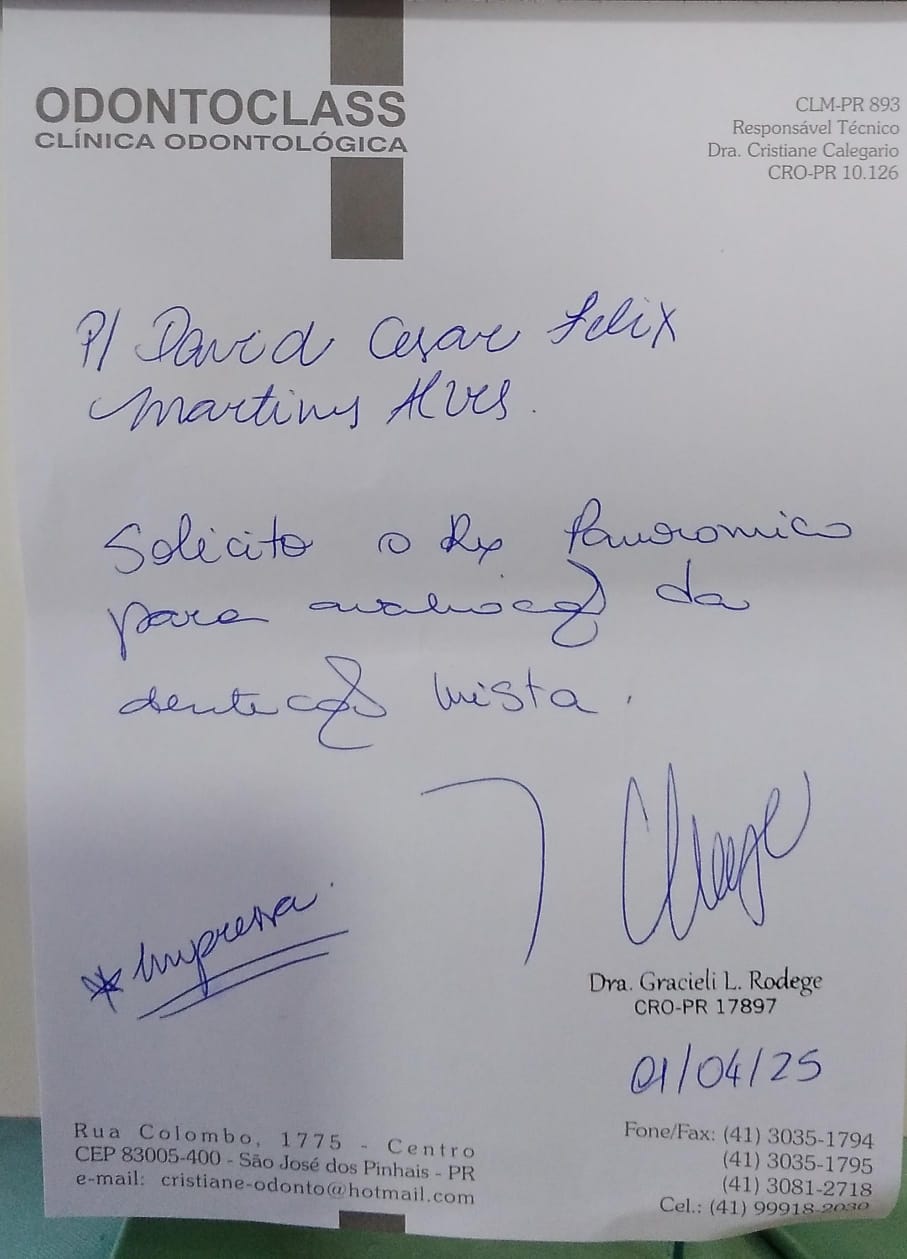 ODONTOCLASS
CLÍNICA ODONTOLÓGICA
CLM-PR 893
Responsável Técnico
Dra. Cristiane Calegario
CRO-PR 10.126
P/ David Cesar Felix
Martins Alves.
Solicito o Rx Panoromico
para avaliação da
dentação mista.
* Impressa.
Dra. Gracieli L. Rodege
CRO-PR 17897
01/04/25
Rua Colombo, 1775 - Centro
CEP 83005-400 - São José dos Pinhais - PR
e-mail: cristiane-odonto@hotmail.com
Fone/Fax: (41) 3035-1794
(41) 3035-1795
(41) 3081-2718
Cel.: (41) 99918-2030